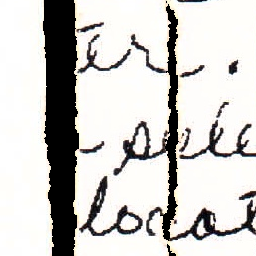 er.
- sele
locat